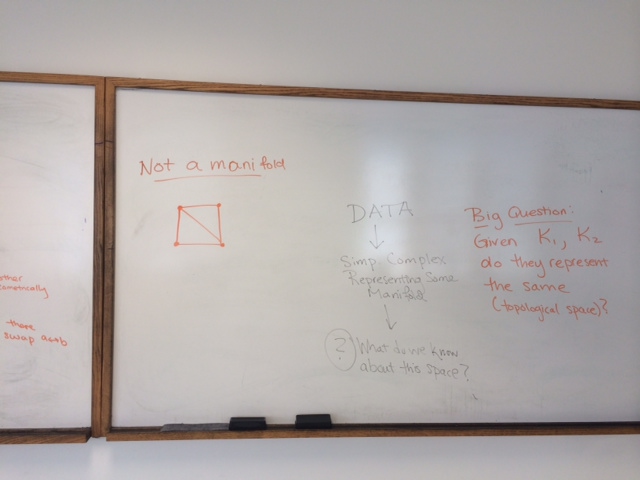 other
ometrically
there
swap a↔b
Not a manifold
DATA
Simp Complex
Representing Some
Manifold
? What do we know
about this space?
Big Question:
Given K₁, K₂
do they represent
the same
(topological space)?